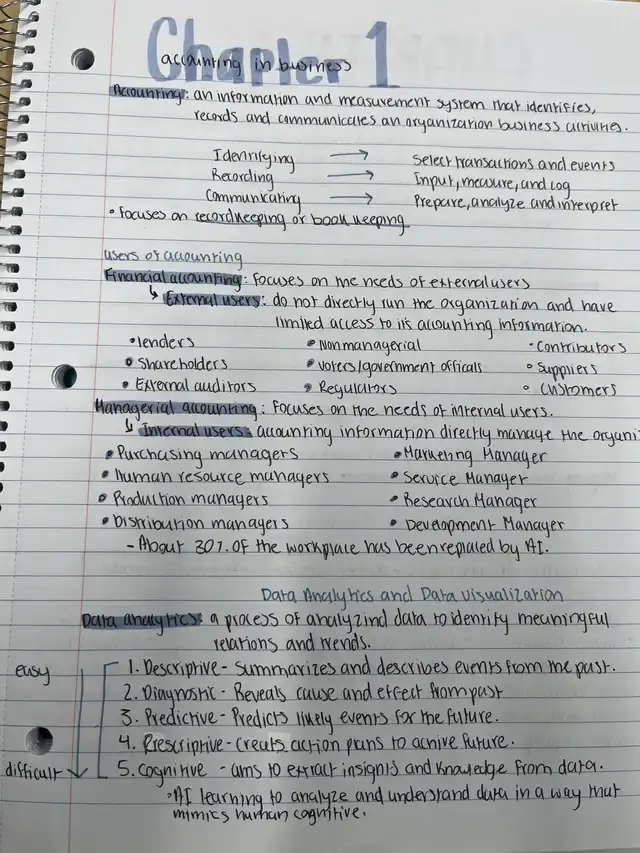 Chapter 1
accounting in business
Accounting: an information and measurement system that identifies,
records and communicates an organization business activities.
Identifying → Select transactions and events
Recording → Input, measure, and log
Communicating → Prepare, analyze and interpret
• Focuses on recordkeeping or book keeping
users of accounting
Financial accounting: Focuses on the needs of external users
↳ External users: do not directly run the organization and have
limited access to its accounting information.
• lenders • Nonmanagerial • Contributors
• Shareholders • Voters/government officals • Suppliers
• External auditors • Regulators • Customers
Managerial accounting: Focuses on the needs of internal users.
↳ Internal users: accounting information directly manage the organi
• Purchasing managers • Marketing Manager
• Human resource managers • Service Manager
• Production managers • Research Manager
• Distribution managers • Development Manager
- About 30% of the workplace has been replaced by AI.
Data Analytics and Data visualization
Data analytics: a process of analyzind data to identify meaningful
relations and trends.
easy 1. Descriptive - Summarizes and describes events from the past.
2. Diagnostic - Reveals cause and effect from past
3. Predictive - Predicts likely events for the future.
4. Prescriptive - Creats action plans to achive future.
difficult 5. Cognitive - aims to extract insights and knowledge from data.
• AI learning to analyze and understand data in a way that
mimics human cognitive.